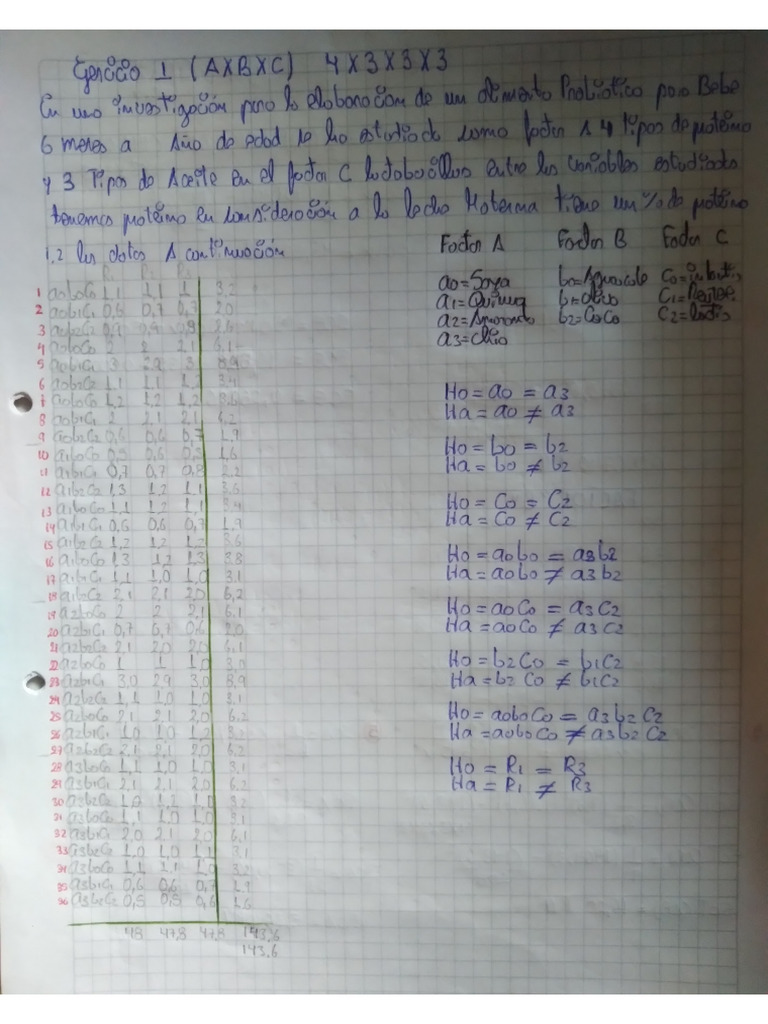 Ejercicio 1 (AXBXC) 4X3X3X3
En una investigación para la elaboración de un alimento Probiotico para Bebe
6 meses a Año de edad se ha estudiado como factor A 4 tipos de proteína
y 3 Tipos de Aceite en el factor C lactobacillus entre las variables estudiadas
tenemos proteína en consideración a la leche Materna tiene un % de proteína
1,2 los datos A continuación
Factor A Factor B Factor C
a0=Soya b0=Aguacate C0=
a1=Quinua b1=olivo C1=
a2=Amaranto b2=CoCo C2=lactis
a3=
R1 R2 R3
1 a0b0C0 1,1 1,1 1 3,2
2 a0b1C1 0,6 0,7 0,7 2,0
3 a0b2C2 0,9 0,9 2,6
4 a0b0C0 2 2 2,1 6,1
5 a0b1C1 3 2,9 3 8,9
6 a0b2C2 1,1 1,1 1,2 3,4
7 a0b0C0 1,2 1,2 1,2 3,6
8 a0b1C1 2 2,1 2,1 6,2
9 a0b2C2 0,6 0,6 0,7 1,9
10 a1b0C0 0,5 0,6 0,5 1,6
11 a1b1C1 0,7 0,7 0,8 2,2
12 a1b2C2 1,3 1,2 1,1 3,6
13 a1b0C0 1,1 1,2 1,1 3,4
14 a1b1C1 0,6 0,6 0,7 1,9
15 a1b2C2 1,2 1,2 1,2 3,6
16 a1b0C0 1,3 1,2 1,3 3,8
17 a1b1C1 1,1 1,0 1,0 3,1
18 a1b2C2 2,1 2,1 2,0 6,2
19 a2b0C0 2 2 2,1 6,1
20 a2b1C1 0,7 0,7 0,6 2,0
21 a2b2C2 2,1 2,0 2,0 6,1
22 a2b0C0 1 1 1,0 3,0
23 a2b1C1 3,0 2,9 3,0 8,9
24 a2b2C2 1,1 1,0 1,0 3,1
25 a2b0C0 2,1 2,1 2,0 6,2
26 a2b1C1 1,0 1,0 1,2
27 a2b2C2 2,1 2,1 2,0 6,2
28 a3b0C0 1,1 1,0 1,0 3,1
29 a3b1C1 2,1 2,1 2,0 6,2
30 a3b2C2 1,0 1,2 1,0 3,2
31 a3b0C0 1,1 1,0 1,0 3,1
32 a3b1C1 2,0 2,1 2,0 6,1
33 a3b2C2 1,0 1,0 1,1 3,1
34 a3b0C0 1,1 1,1 1,0 3,2
35 a3b1C1 0,6 0,6 0,7 1,9
36 a3b2C2 0,5 0,5 0,6 1,6
48 47,8 47,8 143,6
143,6
Ho = a0 = a3
Ha = a0 ≠ a3
Ho = b0 = b2
Ha = b0 ≠ b2
Ho = C0 = C2
Ha = C0 ≠ C2
Ho = a0b0 = a3b2
Ha = a0b0 ≠ a3b2
Ho = a0C0 = a3C2
Ha = a0C0 ≠ a3C2
Ho = b2C0 = b1C2
Ha = b2C0 ≠ b1C2
Ho = a0b0C0 = a3b2C2
Ha = a0b0C0 ≠ a3b2C2
Ho = R1 = R3
Ha = R1 ≠ R3